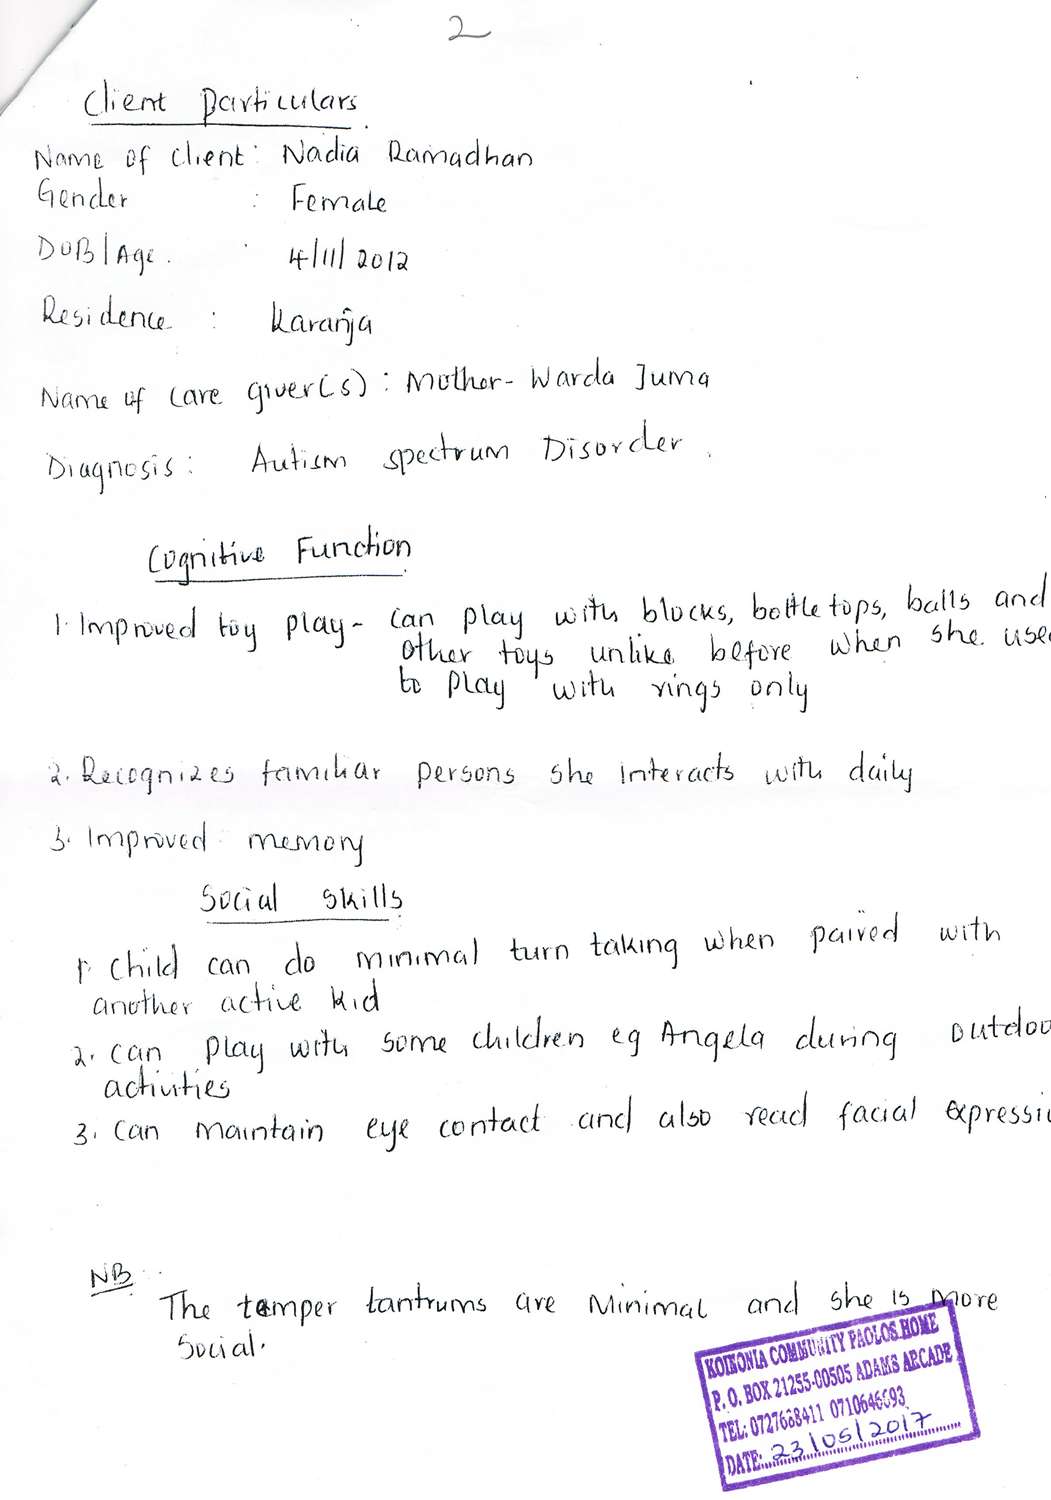 2
Client Particulars.
Name of client: Nadia Ramadhan
Gender : Female
DOB/Age. : 4/11/2012
Residence : Karanja
Name of care giver(s): Mother- Warda Juma
Diagnosis: Autism spectrum Disorder.
Cognitive Function
1. Improved toy play- can play with blocks, bottle tops, balls and
other toys unlike before when she use
to play with rings only
2. Recognizes familiar persons she interacts with daily
3. Improved memory
Social skills
1. Child can do minimal turn taking when paired with
another active kid
2. can play with some children eg Angela during outdoo
activities
3. can maintain eye contact and also read facial expressi
NB
The temper tantrums are minimal and she is more
social.
KOINONIA COMMUNITY PAOLOS HOME
P. O. BOX 21255-00505 ADAMS ARCADE
TEL: 0727688411 0710646693
DATE: 23/05/2017